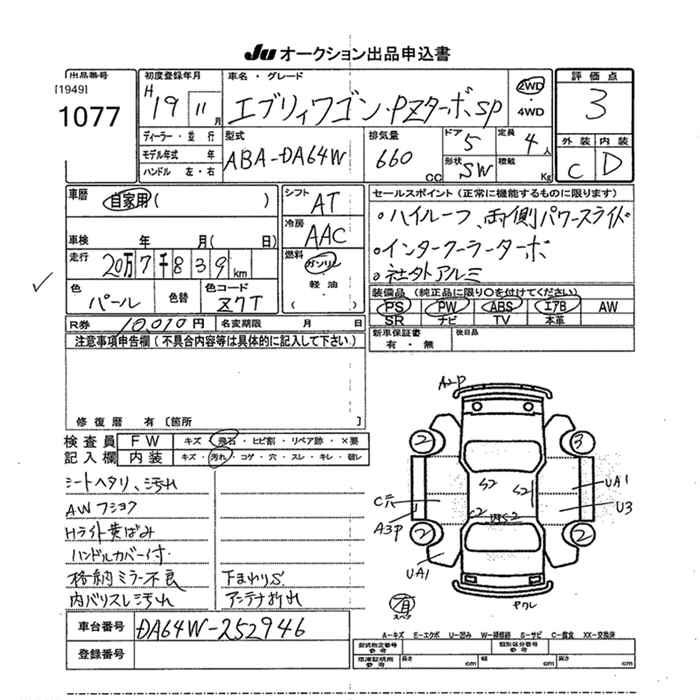 Ju オークション出品申込書
出品番号
[1949]
1077
初度登録年月
H 19 11 月
車名・グレード
エブリィワゴン・PZターボSP
2WD
・
4WD
評価点
3
ディーラー・並行
モデル年式 年
ハンドル 左・右
型式
ABA-DA64W
排気量
660 CC
ドア
5
定員
4 人
形状
SW
積載
Kg
外装 内装
C D
車歴
自家用 ( )
シフト
AT
セールスポイント (正常に機能するものに限ります)
・ハイルーフ、両側パワースライド
・インタークーラーターボ
・社外アルミ
車検 年 月( 日)
冷房
AAC
走行 20万7千839km
燃料
ガソリン
・
軽油
・
( )
色
パール
色替
色コード
Z7T
装備品 (純正品に限り○を付けてください)
PS PW ABS エアB AW
SR ナビ TV 本革
R券 10,010円
名変期限 月 日
新車保証書
有・無
後日品
注意事項申告欄(不具合内容等は具体的に記入して下さい)
修復歴 有〔箇所 〕
検査員 FW キズ・飛石・ヒビ割・リペア跡・×要
記入欄 内装 キズ・汚れ・コゲ・穴・スレ・キレ・破レ
シートヘタリ、汚れ
AWフショク
Hライト黄ばみ
ハンドルカバー付
格納ミラー不良 下まわりS
内バリスレ汚れ アンテナ折れ
A2P
2 3
S2 S2
UA1
C穴
U3
A3P
C2 内S2
2 2
UA1
有
スペア
ヤクレ
車台番号 DA64W-252946
登録番号
A-キズ E-エクボ U-凹み W-補修跡 S-サビ C-腐食 XX-交換済
型式指定番号
参考
類別区分番号
参考
車庫証明用
参考
長さ cm 幅 cm 高さ cm